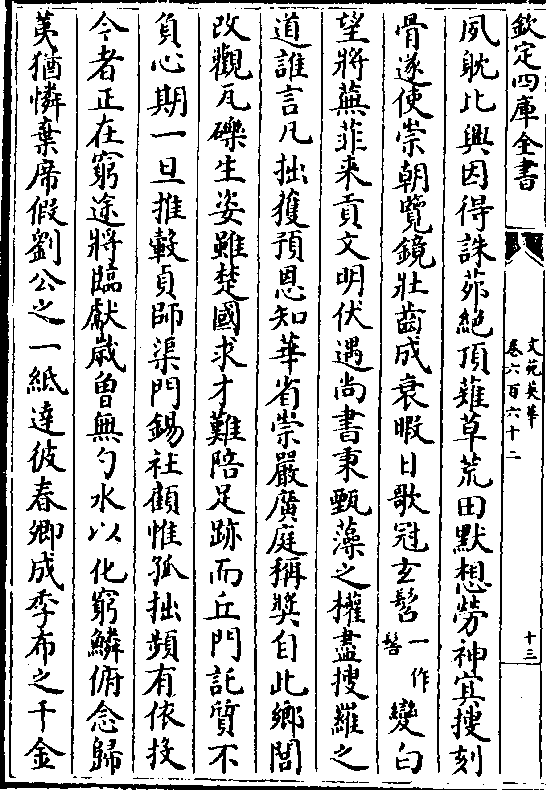 欽定四庫全書
文苑英華
卷六百六十二
十三
夙耽比興因得誅茆絶頂薙草荒田默想勞神㝠搜刻
骨遂使崇朝覽鏡壯齒成衰暇日歌冠玄髻一作髻變白
望將蕪菲来貢文明伏遇尚書秉甄藻之權盡搜羅之
道誰言凡拙獲預恩知華省崇嚴廣庭稱奨自此鄉閭
改觀瓦礫生姿雖楚國求才難陪足跡而丘門託質不
負心期一旦推轂貞師渠門錫社顧惟孤拙頻有依投
令者正在窮途將臨獻歲曾無勺水以化窮鱗俯念歸
荑猶憐棄席假劉公之一紙達彼春卿成季布之千金